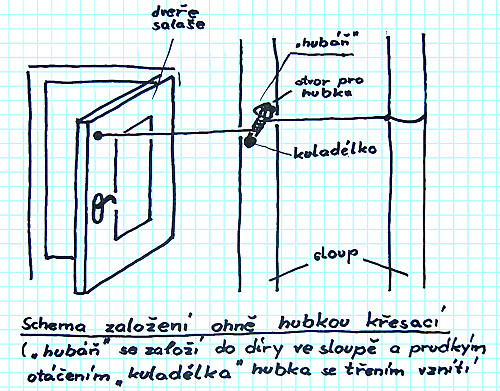 dveře
salaše
„hubáň"
otvor pro
hubku
kuladélko
sloup
Schema založení ohně hubkou křesací
(„hubáň" se založí do díry ve sloupě a prudkým
otáčením „kuladélka" hubka se třením vznítí